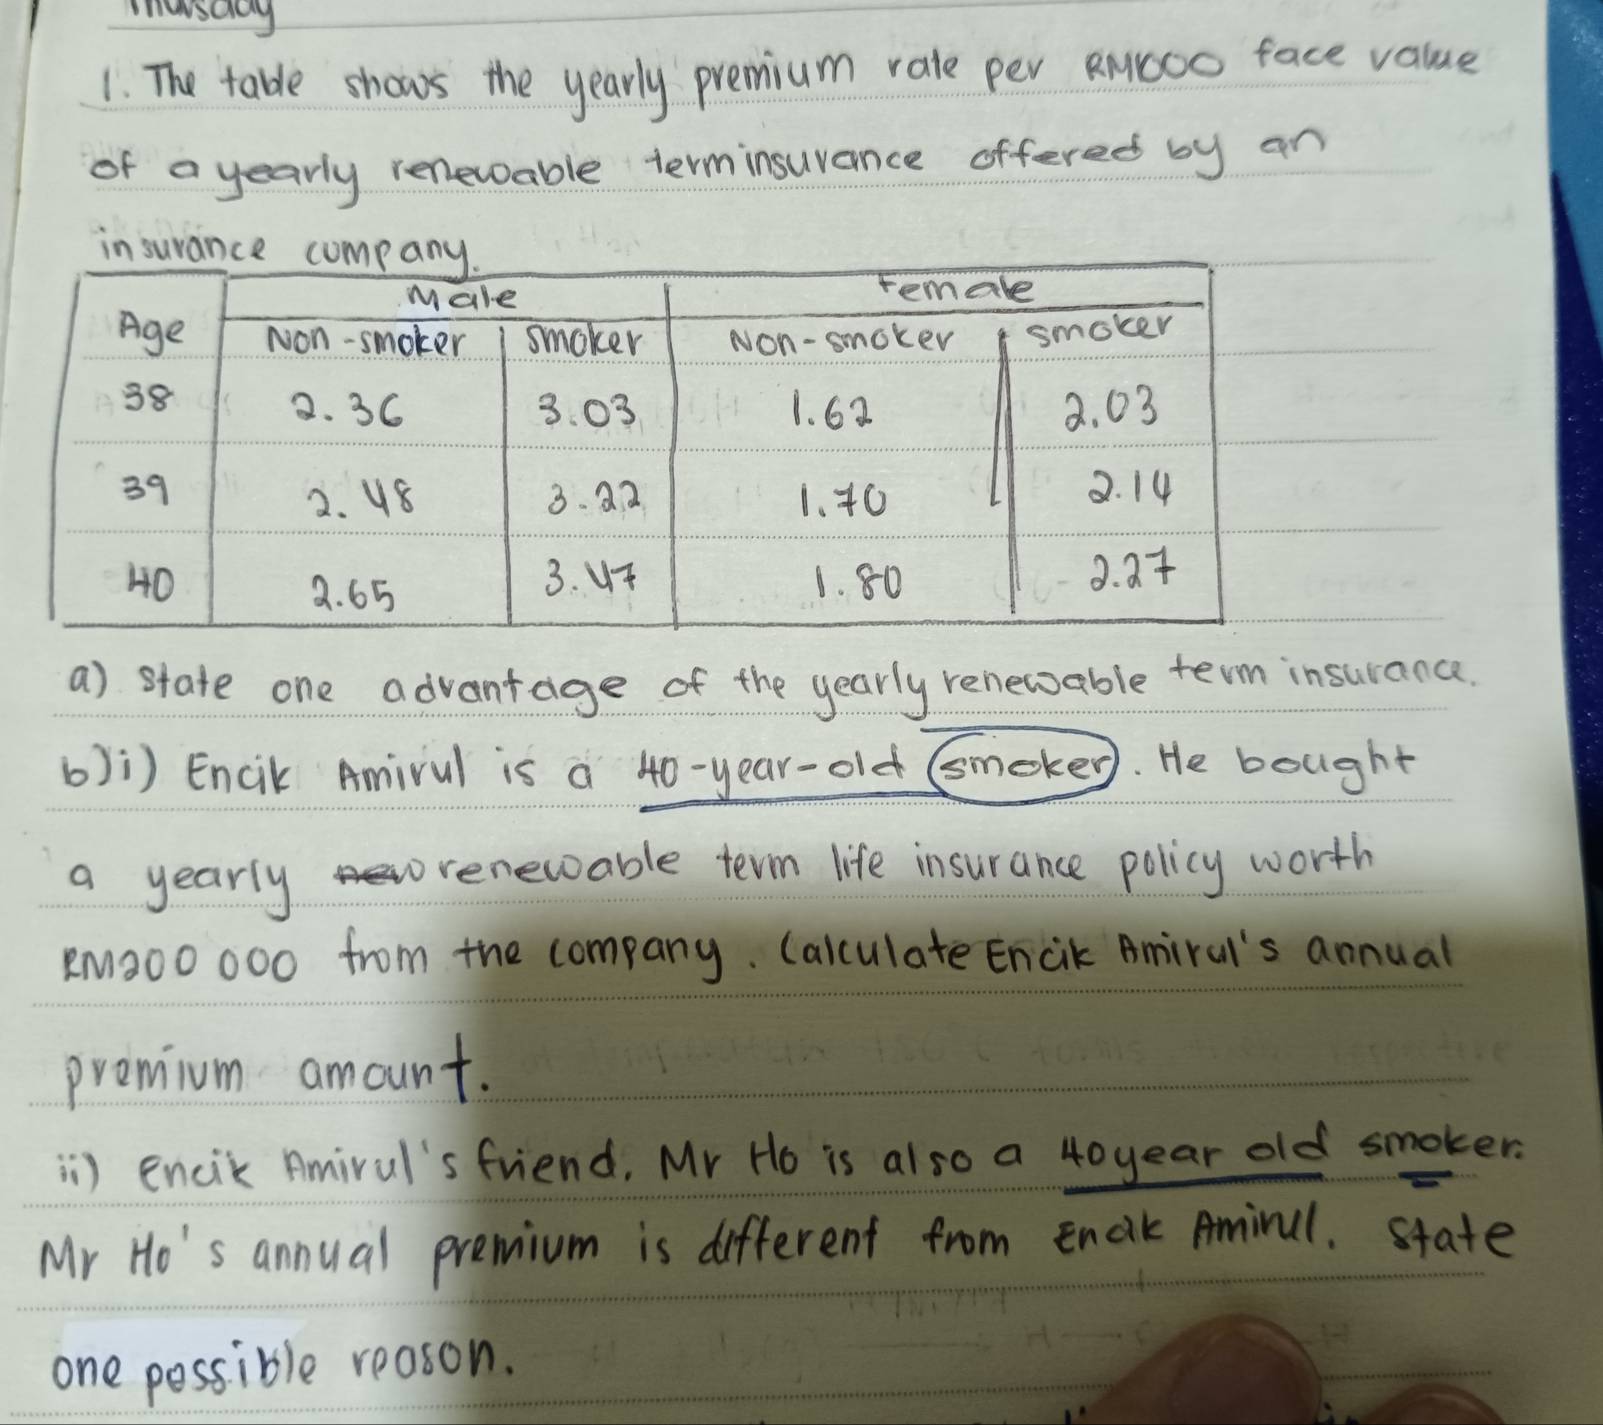 Thursday
1. The table shows the yearly premium rate per RM1000 face value
of a yearly renewable term insurance offered by an
insurance company.
Age Male Female
Non-smoker smoker Non-smoker smoker
38 2.36 3.03 1.62 2.03
39 2.48 3.22 1.70 2.14
40 2.65 3.47 1.80 2.27
a) state one advantage of the yearly renewable term insurance.
b)i) Encik Amirul is a 40-year-old smoker. He bought
a yearly new renewable term life insurance policy worth
RM200 000 from the company. Calculate Encik Amirul's annual
premium amount.
ii) Encik Amirul's friend. Mr Ho is also a 40 year old smoker.
Mr Ho's annual premium is different from Encik Amirul. State
one possible reason.